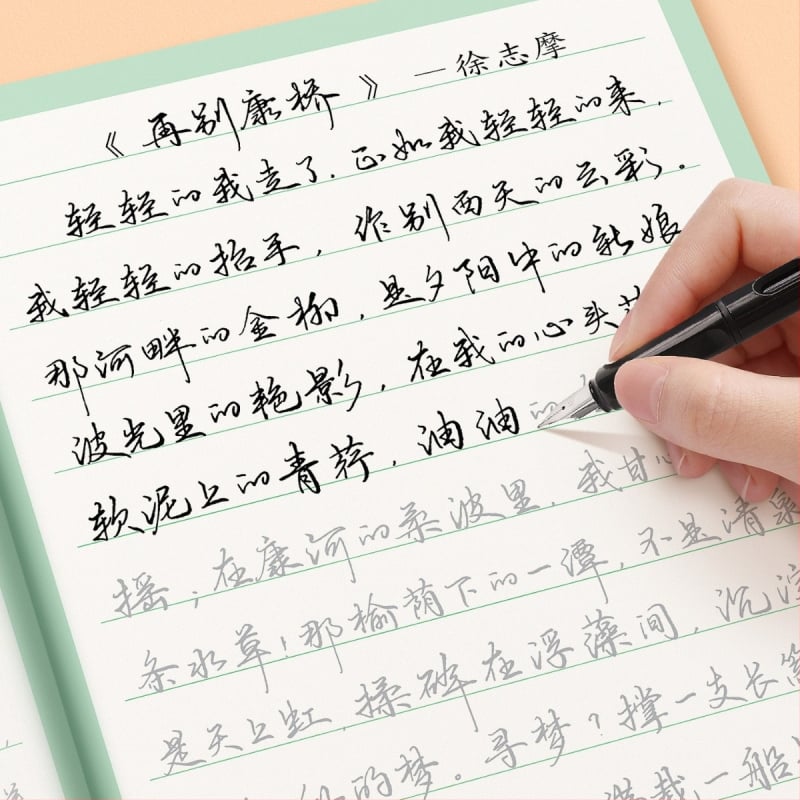 《再别康桥》—徐志摩
轻轻的我走了.正如我轻轻的来,
我轻轻的招手,作别西天的云彩。
那河畔的金柳,是夕阳中的新娘
波光里的艳影,在我的心头
软泥上的青荇,油油的
摇;在康河的柔波里,我甘心
条水草!那榆荫下的一潭,不是清泉
是天上虹,揉碎在浮藻间,沉淀
的梦。寻梦?撑一支长篙
满载一船